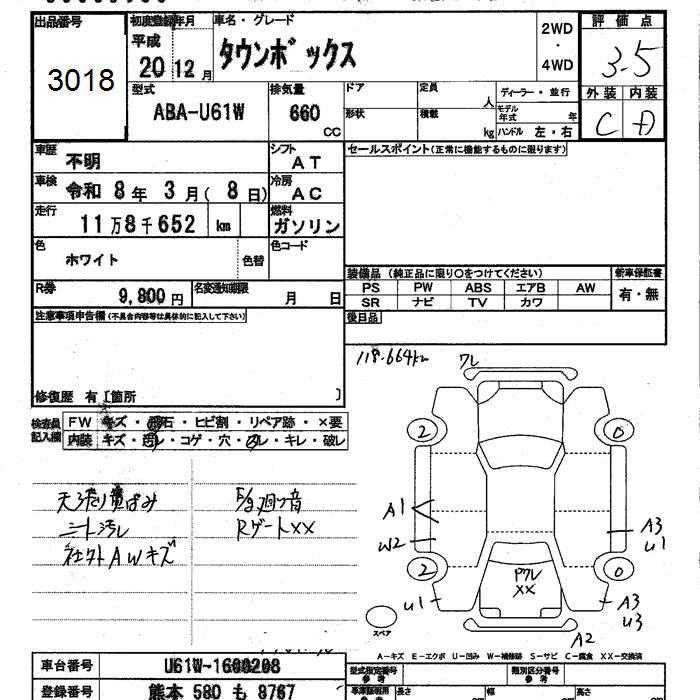 出品番号
3018
初度登録年月
平成
20 12 月
車名・グレード
タウンボックス
2WD
・
4WD
評価点
3.5
外装 内装
C D
型式
ABA-U61W
排気量
660
CC
ドア
定員
人
形状
積載
kg
ディーラー・並行
モデル年式 年
ハンドル 左・右
車歴
不明
シフト
AT
セールスポイント(正常に機能するものに限ります)
車検
令和 8 年 3 月( 8 日)
冷房
AC
走行
11 万 8 千 652 km
燃料
ガソリン
色
ホワイト
色替
色コード
装備品 (純正品に限り○をつけてください)
新車保証書
PS PW ABS エアB AW
SR ナビ TV カワ
有・無
R券
9,800 円
名変通知期限
月 日
後日品
注意事項申告欄(不具合内容等は具体的に記入して下さい)
118.664km
ワレ
修復歴 有 [箇所 ]
検査員記入欄
FW キズ・飛石・ヒビ割・リペア跡・×要
内装 キズ・汚レ・コゲ・穴・スレ・キレ・破レ
2 0
A1
W2
A3
U1
2 0
U1
A3
U3
PワレXX
A2
スペア
シート汚レ
AWキズ
RゲートXX
A-キズ E-エクボ U-凹み W-補修跡 S-サビ C-腐食 XX-交換済
車台番号
U61W-1600208
型式指定番号
類別区分番号
登録番号
熊本 580 も 8767
長さ
幅
高さ